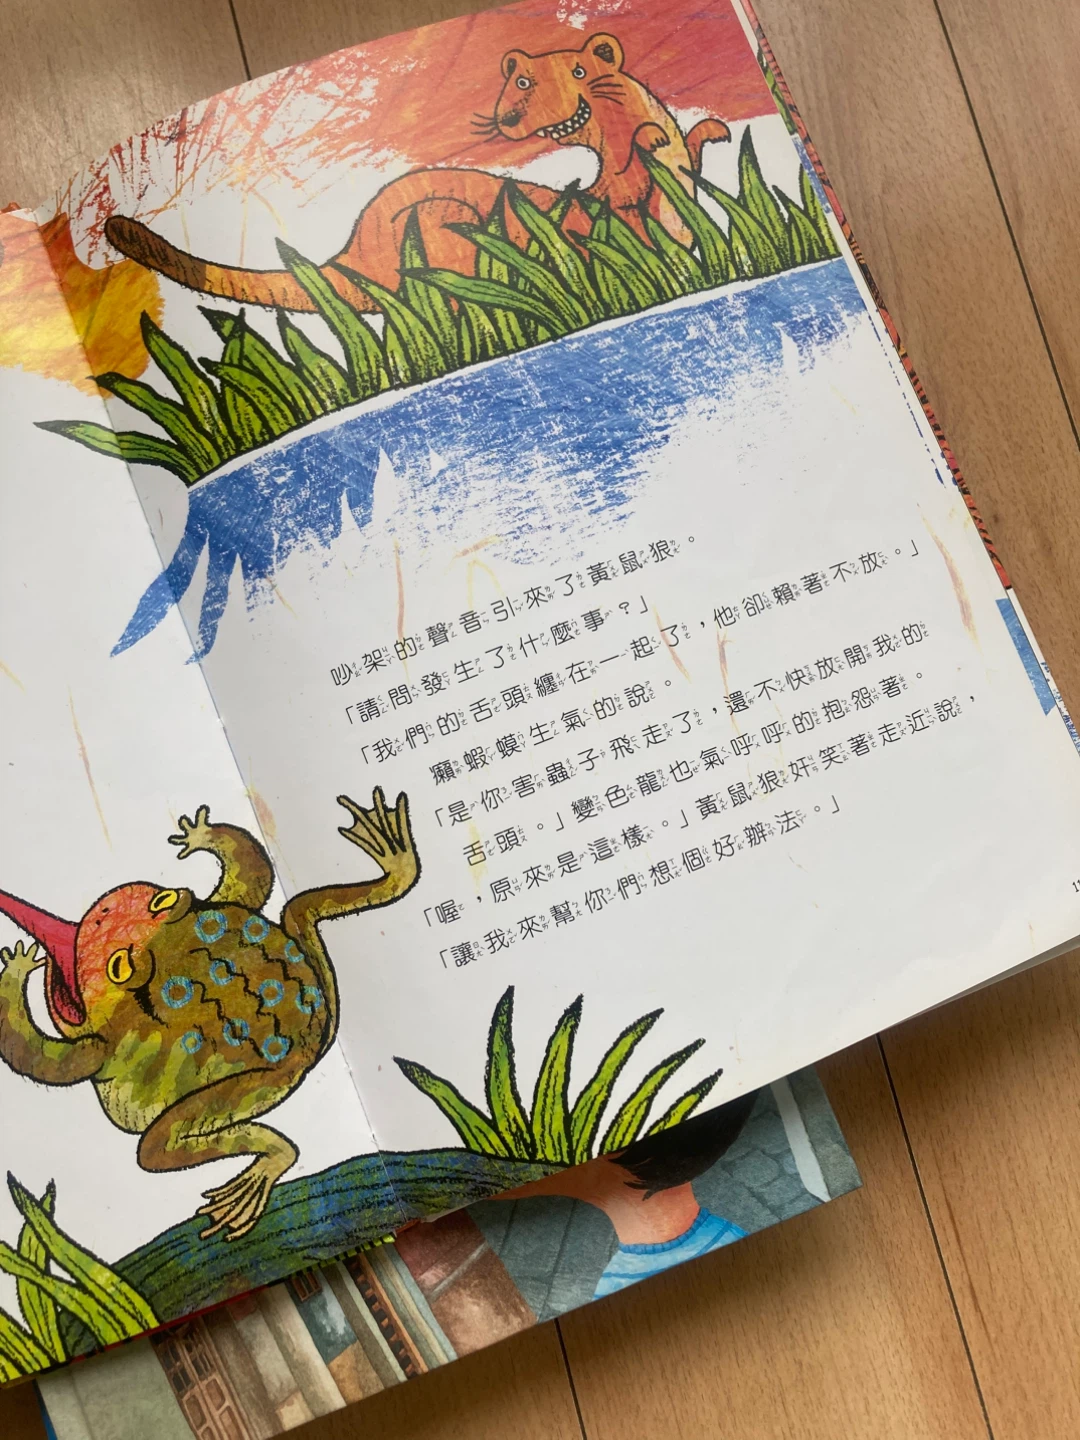 吵架的聲音引來了黃鼠狼。
「請問發生了什麼事？」
「我們的舌頭纏在一起了，他卻賴著不放。」
癩蝦蟆生氣的說。
「是你害蟲子飛走了，還不快放開我的
舌頭。」變色龍也氣呼呼的抱怨著。
「喔，原來是這樣。」黃鼠狼奸笑著走近說，
「讓我來幫你們想個好辦法。」